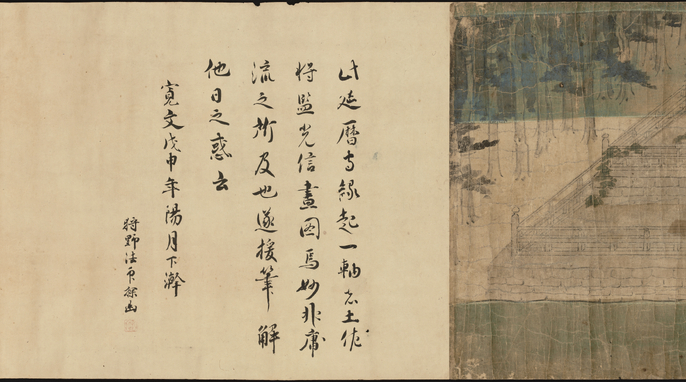 此延暦寺縁起一軸者土佐
将監光信畫圖焉妙非庸
流之所及也遂援筆解
他日之惑云
寛文戊申年陽月下澣
狩野法印探幽